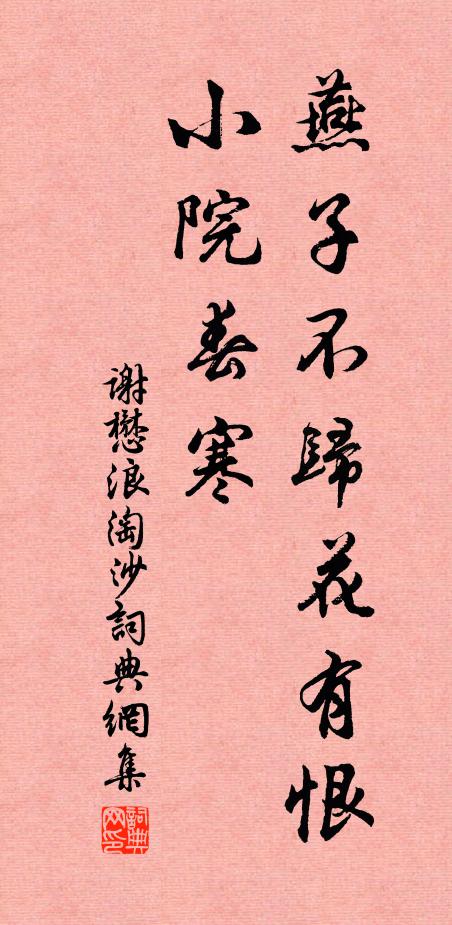 燕子不歸花有恨
小院春寒
謝懋浪淘沙詞典網集
詞典网印